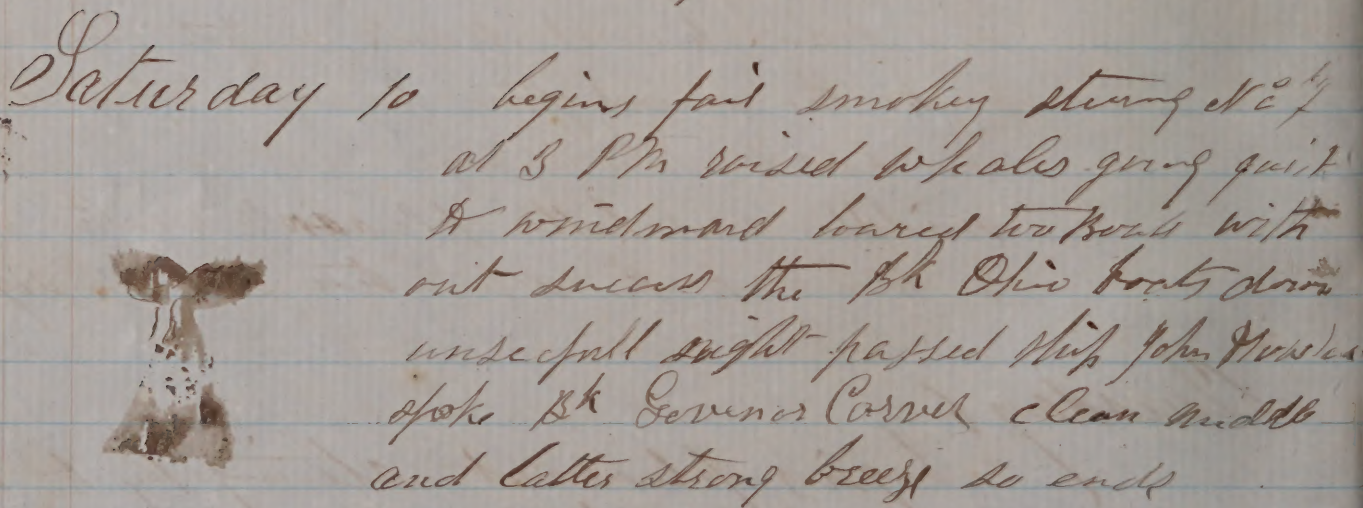 Saturday 10 begins fair smokey steering No by
at 3 PM raised whales going quick
to windward loared two Boats with
out success the Bk Ohio boats down
unsecfull night passed ship John Howland
spoke Bk Govenor Carver clean middle
and latter strong breeze so ends